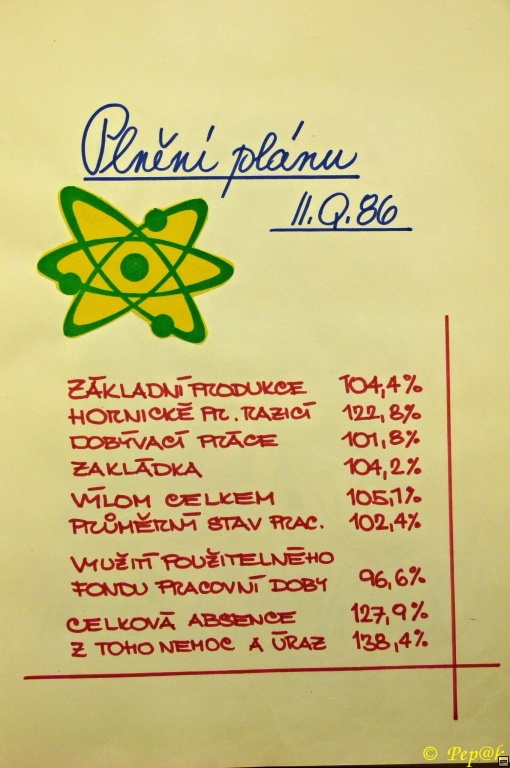 Plnění plánu
II.Q.86
ZÁKLADNÍ PRODUKCE 104,4%
HORNICKÉ PR. RAZICÍ 122,8%
DOBÝVACÍ PRÁCE 101,8%
ZAKLÁDKA 104,2%
VÝLOM CELKEM 105,1%
PRŮMĚRNÍ STAV PRAC. 102,4%
VYUŽITÍ POUŽITELNÉHO
FONDU PRACOVNÍ DOBY 96,6%
CELKOVÁ ABSENCE 127,9%
Z TOHO NEMOC A ÚRAZ 138,4%
© Pep@k